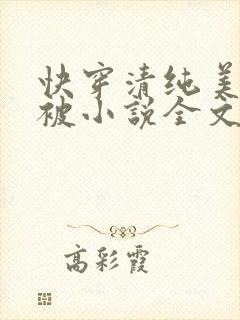 快穿清纯美
被小说全文
高彩霞